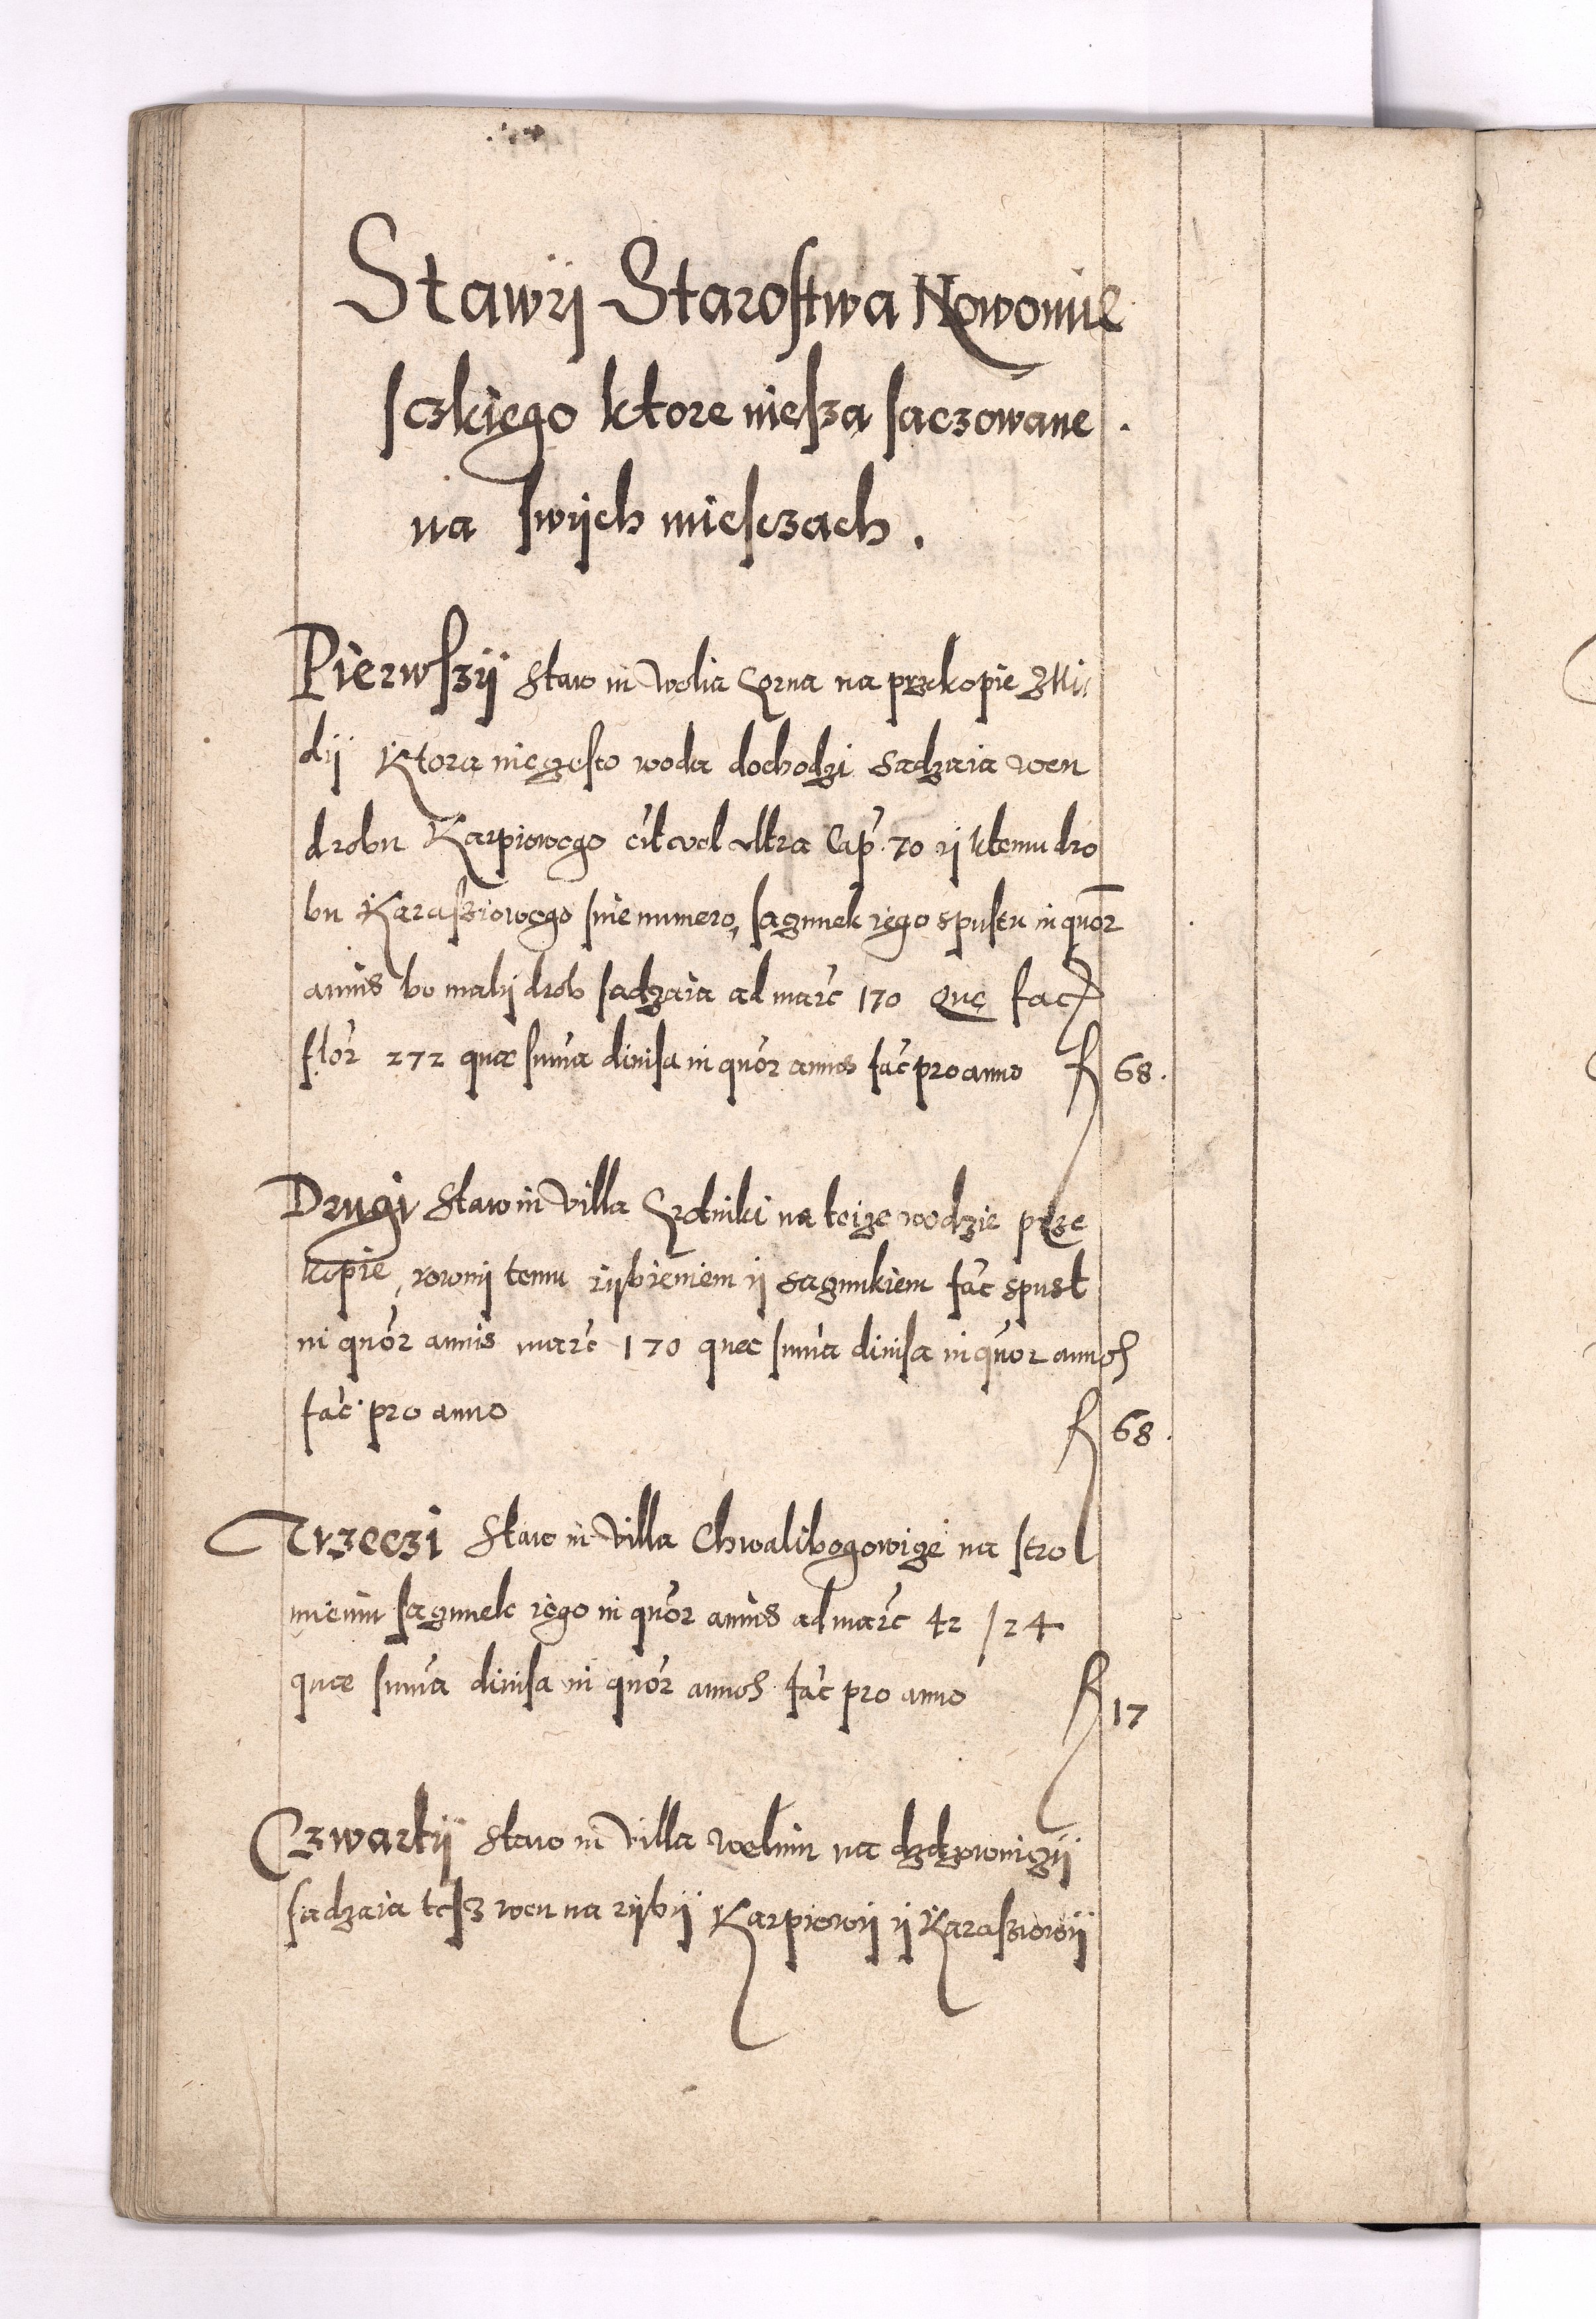 Stawÿ Starostwa Nowomie
sczkiego ktore nieſza ſaczowane.
na ſwÿch mieſczach.
Pierwſzÿ Staw in Wolia Gorna na przekopie
dÿ ktora nieczęſto woda dochodzi sadzaia wen
drobu Karpiowego vel vltra Cap. 70 ÿ ktemu dro
bu Karaſziowego ſine numero, ſaczunek iego spuſtu in quor
annis bo malÿ drob ſadzaia ad marc 170 Que fac
flor 272 quæ ſumma diuiſa in quor annos fac pro anno f 68.
Drugi Staw in Villa Grotniki na teize wodzie prze
kopie, rownÿ temu rÿbieniem ÿ sacunkiem fac spust
in quor annis marc 170 quæ ſumma diuiſa in quor annos
fac pro anno f 68.
Trzeczi Staw in Villa Chwalibogowice na stro
mieniu ſacunek iego in quor annis ad marc 42 / 24
quæ ſumma diuiſa in quor annos fac pro anno f 17
Czwartÿ Staw in Villa Welnin na
ſadzaia teſz wen na rÿbÿ Karpiowÿ ÿ Karaſziowÿ